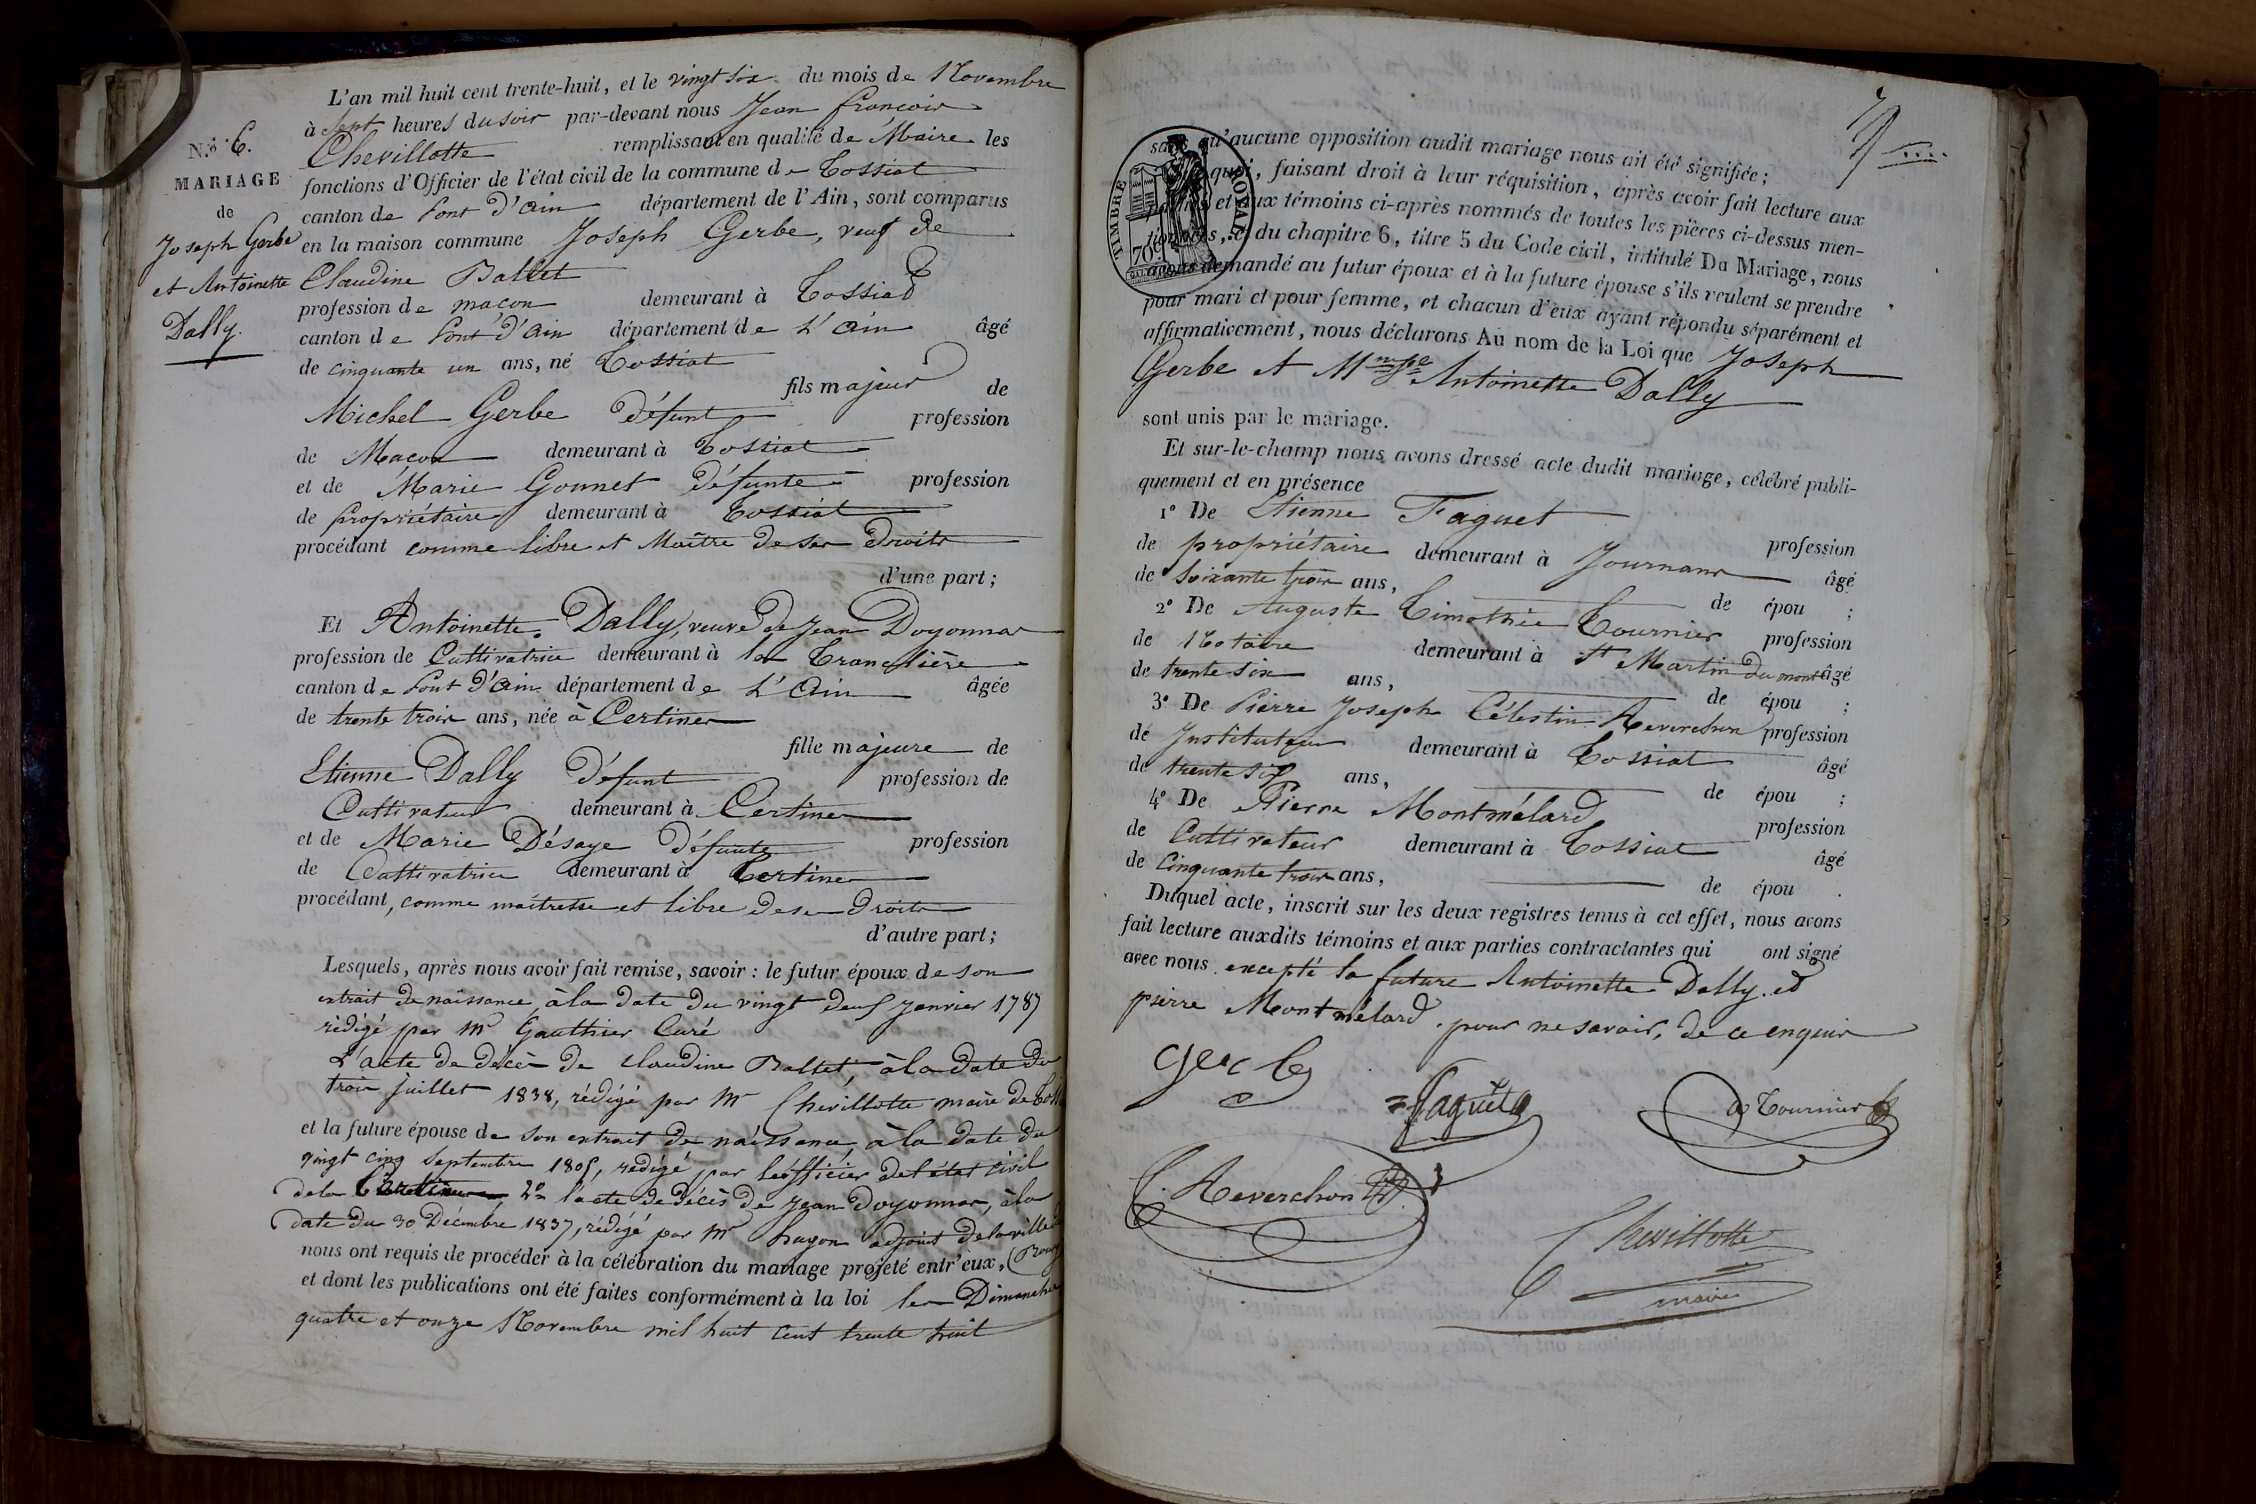 L'an mil huit cent trente-huit, et le vingt six du mois de Novembre
à Sept heures du soir par-devant nous Jean françois
Chevillotte remplissant en qualité de Maire les
fonctions d'Officier de l'état civil de la commune de Tossiat
canton de Pont d'ain département de l'Ain, sont comparus
en la maison commune Joseph Gerbe, veuf de
Claudine Ballet
profession de maçon demeurant à Tossiat
canton de Pont d'ain département de L'ain âgé
de cinquante un ans, né Tossiat
fils majeur de
Michel Gerbe défunt profession
de Macon demeurant à Tossiat
et de Marie Gonnet défunte profession
de propriétaire demeurant à Tossiat
procédant comme libre et Maître de ses droits
d'une part;
Et Antoinette Dally, veuve de Jean Doyonnas
profession de Cultivatrice demeurant à la Tranclière
canton de Pont d'ain département de L'ain âgée
de trente trois ans, née à Certines
fille majeure de
Etienne Dally défunt profession de
Cultivateur demeurant à Certines
et de Marie Désaye défunte profession
de Cultivatrice demeurant à Certines
procédant, comme maîtresse et libre de ses droits
d'autre part;
Lesquels, après nous avoir fait remise, savoir: le futur époux de son
extrait de naissance, à la date du vingt deux janvier 1787
rédigé par Mr Gauthier Curé
L'acte de décès de Claudine Ballet, à la date du
trois juillet 1838, rédigé par Mr Chevillotte maire de
et la future épouse de son extrait de naissance, à la date du
vingt cinq Septembre 1805, rédigé par l'officier de l'état civil
de la 2º l'acte de décès de Jean Doyonnas, à la
date du 30 Décembre 1837, rédigé par Mr hayon adjoint de la ville de
nous ont requis de procéder à la célébration du mariage projeté entr'eux, (Bourg
et dont les publications ont été faites conformément à la loi les Dimanches
quatre et onze Novembre mil huit cent trente huit
N.º 6.
MARIAGE
de
Joseph Gerbe
et Antoinette
Dally.
TIMBRE ROYAL
70c
qu'aucune opposition audit mariage nous ait été signifiée;
quoi, faisant droit à leur réquisition, après avoir fait lecture aux
parties et aux témoins ci-après nommés de toutes les pièces ci-dessus men-
tionnées, et du chapitre 6, titre 5 du Code civil, intitulé Du Mariage, nous
avons demandé au futur époux et à la future épouse s'ils veulent se prendre
pour mari et pour femme, et chacun d'eux ayant répondu séparément et
affirmativement, nous déclarons Au nom de la Loi que Joseph
Gerbe et Antoinette Dally
sont unis par le mariage.
Et sur-le-champ nous avons dressé acte dudit mariage, célébré publi-
quement et en présence
1º De Etienne Faguet profession
de propriétaire demeurant à Journans âgé
de soixante trois ans, de épou ;
2º De Auguste Timothée Tournier profession
de Notaire demeurant à St Martin du mont âgé
de trente six ans, de épou ;
3º De Pierre Joseph Célestin Reverchon profession
de Instituteur demeurant à Tossiat âgé
de trente six ans, de épou ;
4º De Pierre Montmélard profession
de Cultivateur demeurant à Tossiat âgé
de Cinquante trois ans, de épou .
Duquel acte, inscrit sur les deux registres tenus à cet effet, nous avons
fait lecture auxdits témoins et aux parties contractantes qui ont signé
avec nous excepté la future Antoinette Dally et
pierre Montmélard. pour ne savoir, de ce enquis
Gerbe
Faguet
Tournier
C. Reverchon
Chevillotte
maire